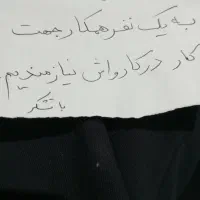 به یک نفر همکار جهت
کار در کارواش نیازمندیم.
با تشکر